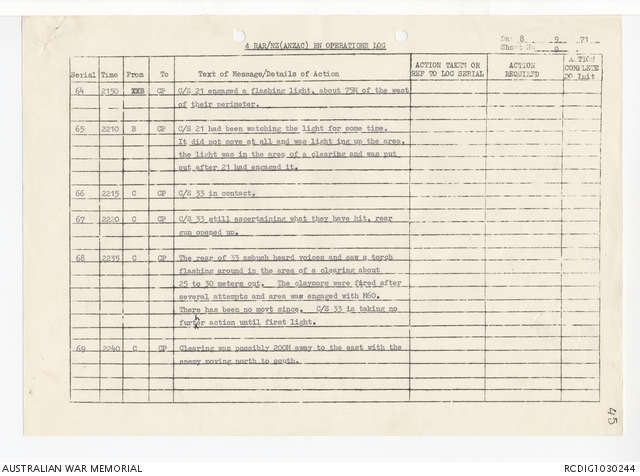 4 RAR/NZ(ANZAC) BN OPERATIONS LOG
Date 8 9 71
Sheet No. 9
Serial Time From To Text of Message/Details of Action ACTION TAKEN OR REF TO LOG SERIAL ACTION REQUIRED ACTION COMPLETE DO Init
64 2150 XXB CP C/S 21 engaged a flashing light, about 75M of the west
of their perimeter.
65 2210 B CP C/S 21 had been watching the light for some time.
It did not move at all and was light ing up the area,
the light was in the area of a clearing and was put
out after 21 had engaged it.
66 2215 C CP C/S 33 in contact.
67 2220 C CP C/S 33 still ascertaining what they have hit, rear
gun opened up.
68 2235 C CP The rear of 33 ambush heard voices and saw a torch
flashing around in the area of a clearing about
25 to 30 meters out. The claymore were fired after
several attempts and area was engaged with M60.
There has been no movt since. C/S 33 is taking no
further action until first light.
69 2240 C CP Clearing was possibly 200M away to the east with the
enemy moving north to south.
45
AUSTRALIAN WAR MEMORIAL
RCDIG1030244